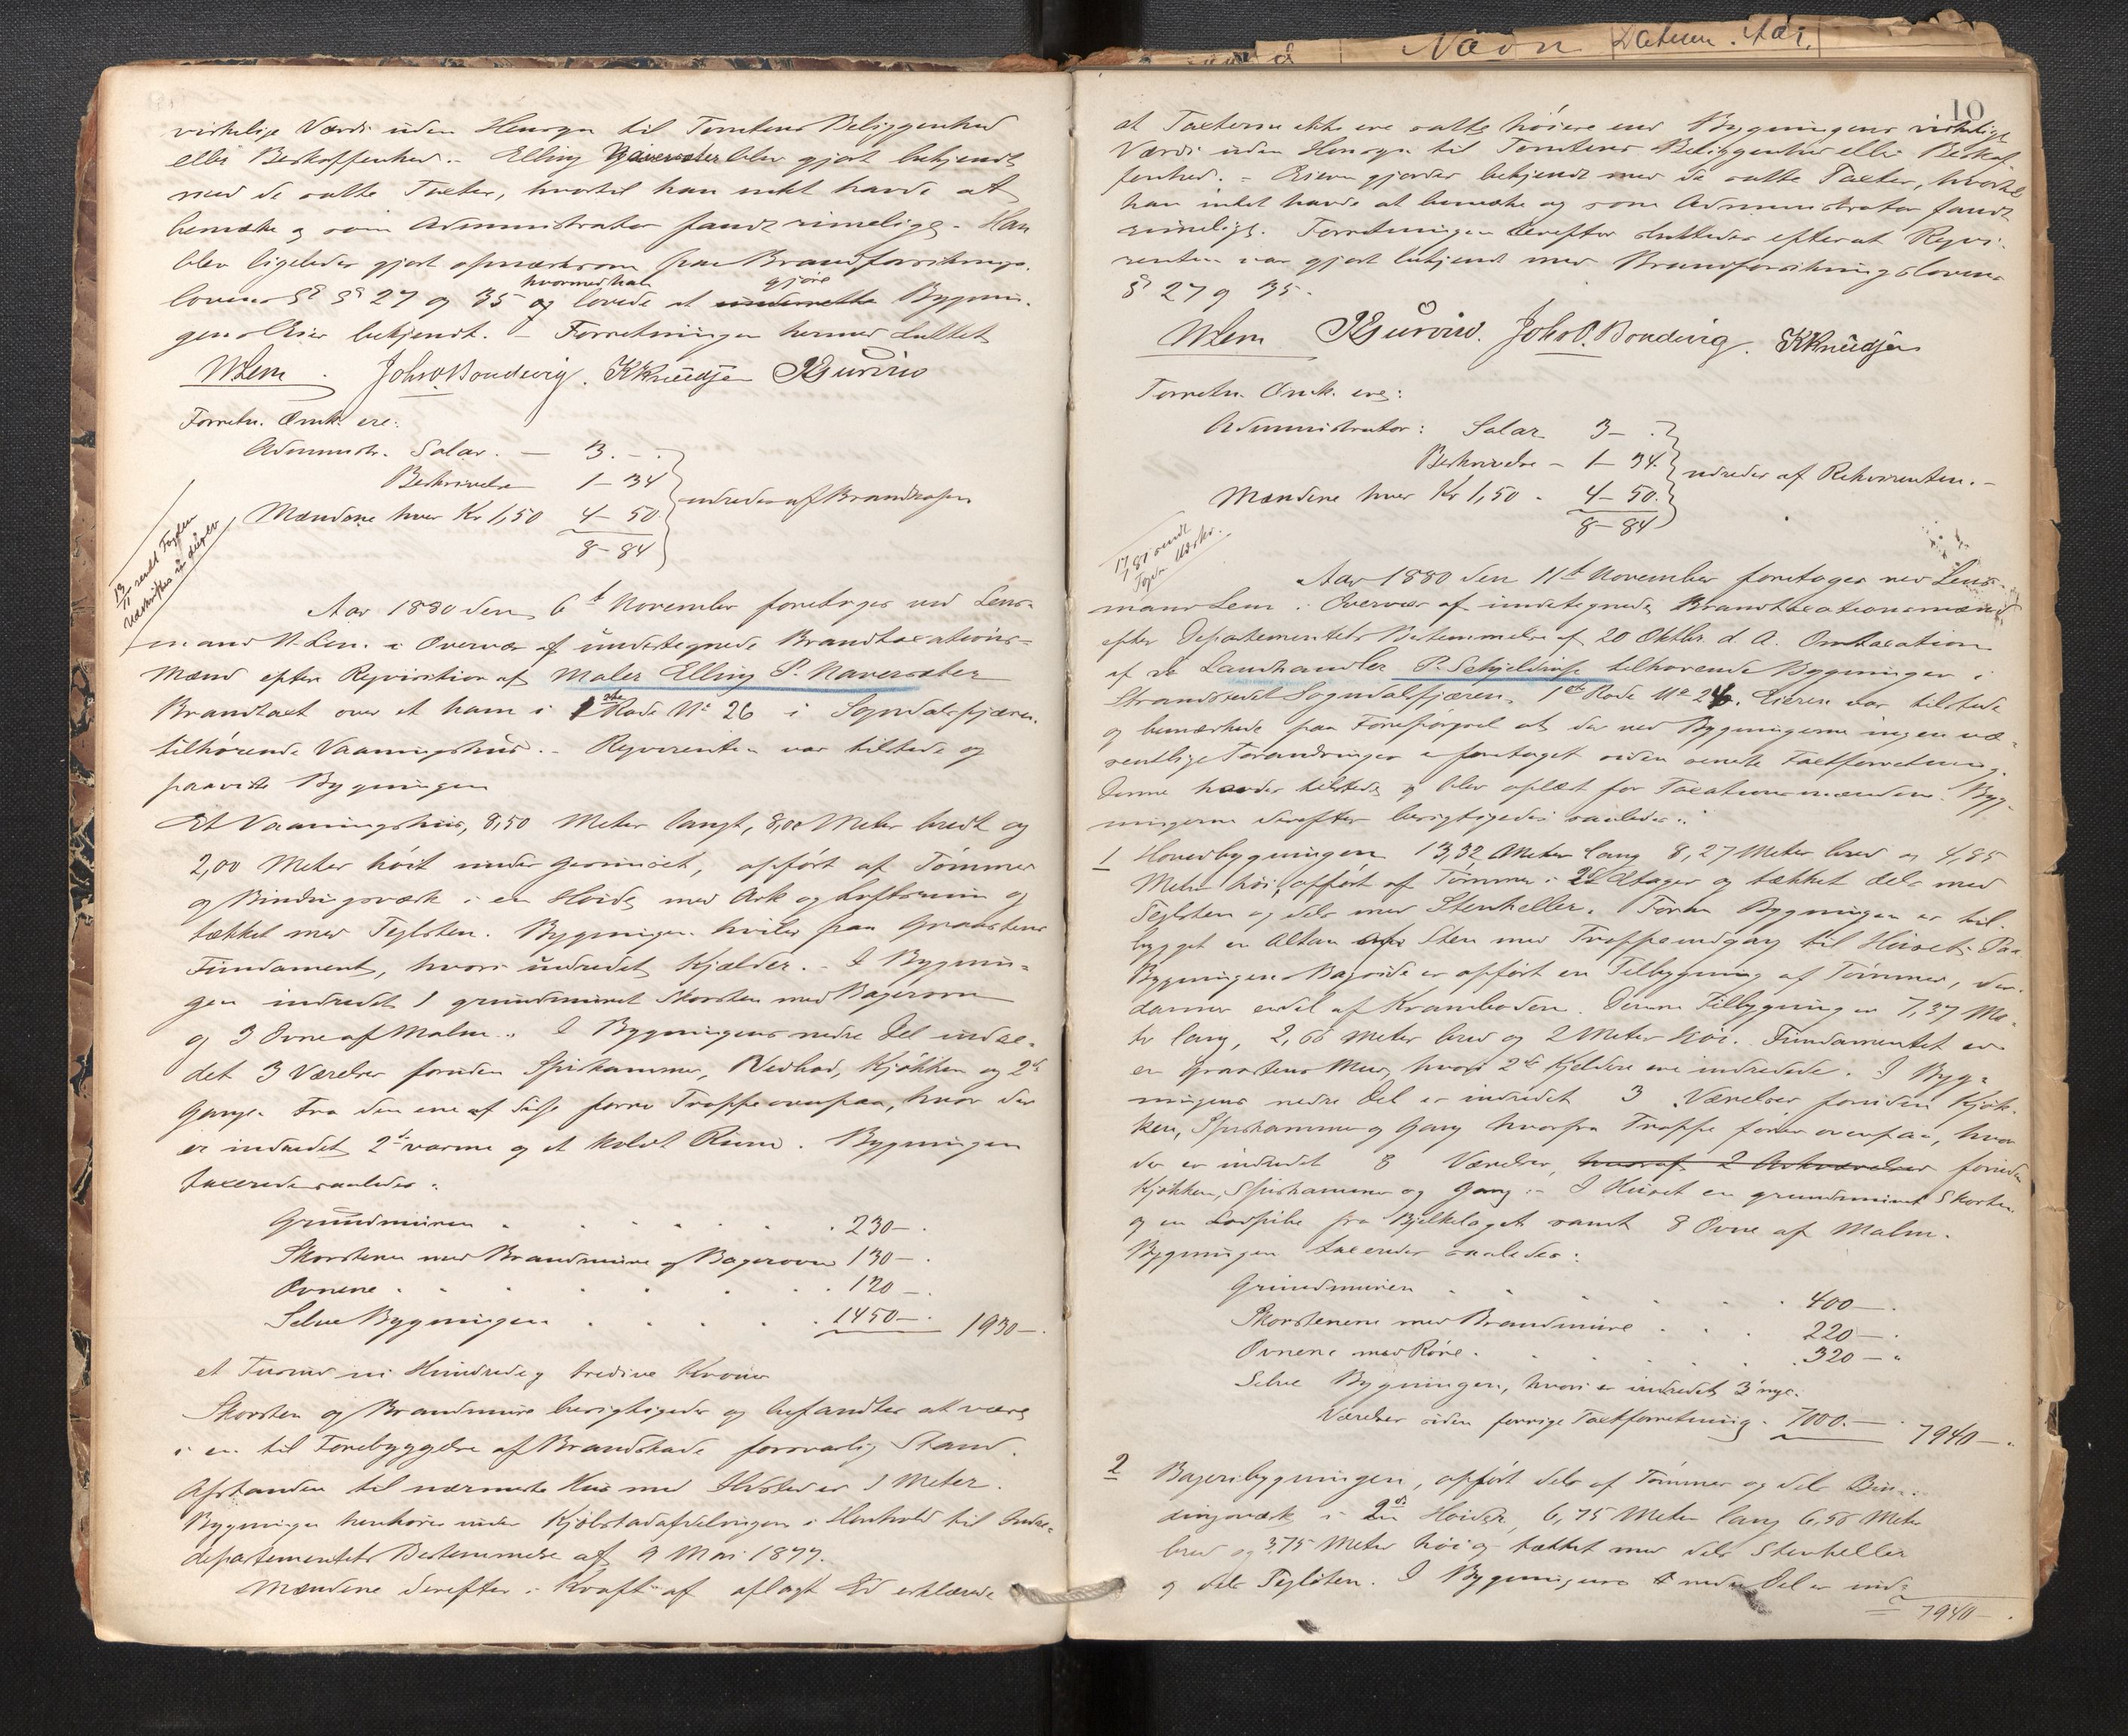 Navn Datum. Aar.
virkelige Værdi uden Hensyn til Tomtens Beliggenhed
eller Beskaffenhed. - Elling Naversæter blev gjort bekjendt
med de satte Taxter, hvortil han intet havde at
bemærke og som Administrator fandt rimelige. - Han
blev ligeledes gjort opmærksom paa Brandforsikrings-
lovens §§ 27 og 35 og lovede at underrette Bygnin-
hvormed han gjøre
gens Eier bekjendt. - Forretningen hermed sluttet
W Lem. Joh. O. Bondevig. K Knudsen
Forretn. Omk. ere:
Administr. Salær. — 3. -.
Beskrivelse 1 - 34
Mændene hver Kr 1,50 4 - 50
udredes af Brandkassen
8 - 84
13/11 sendt Fogden
Udskriften in duplo
Aar 1880 den 6te November foretoges ved Lens-
mand W. Lem i Overvær af undertegnede Brandtaxations-
Mænd efter Reqvisition af Maler Elling P. Naversæter
Brandtaxt over et ham i 1ste Rode No 26 i Sogndalsfjæren
tilhørende Vaaningshus. - Reqvirenten var tilstede og
paaviste Bygningen
Et Vaaningshus, 8,50 Meter langt, 8,00 Meter bredt og
2,00 Meter høit under Gesimset, opført af Tømmer
og Bindingsværk i en Høide med Ark og Loftsrum og
tækket med Teglsten. Bygningen hviler paa Graastens
Fundament, hvori indredet Kjælder. - I Bygnin-
gen indredet 1 grundmuret Skorsten med Bagerovn
og 3 Ovne af Malm. I Bygningens nedre Del indre-
det 3 Værelser foruden Spiskammer, Vedbod, Kjøkken og 2de
Gange. Fra den ene af disse fører Trappe ovenpaa, hvor der
er indredet 2de varme og et koldt Rum. Bygningen
taxeredes saaledes:
Grundmuren 230 -.
Skorstenen med Brandmure og Bagerovn 130 -.
Ovnene 120 -.
Selve Bygningen 1450 -. 1930 -.
et Tusind ni Hundrede og tredive Kroner
Skorsten og Brandmure besigtigedes og befandtes at være
i en til Forebyggelse af Brandskade forsvarlig Stand.
Afstanden til nærmeste Hus med Ildsted er 1 Meter.
Bygningen henhører under Kjøbstadafdelingen i Henhold til Indre-
departementets Bestemmelse af 9 Mai 1877.
Mændene derefter i Kraft af aflagt Ed erklærede
10
at Taxterne ikke ere satte høiere end Bygningens virkelige
Værdi uden Hensyn til Tomtens Beliggenhed eller Beskaf-
fenhed. - Eieren gjordes bekjendt med de satte Taxter, hvortil
han intet havde at bemærke og som Administrator fandt
rimelige. Forretningen derefter sluttedes efterat Reqvi-
renten var gjort bekjendt med Brandforsikringslovens
§§ 27 og 35.
W Lem Joh. O. Bondevig. K Knudsen
Forretn. Omk. ere:
Administrator: Salær 3 -.
Beskrivelse - 1 - 34.
Mændene hver Kr 1,50 - 4 - 50.
udredes af Rekvirenten. -
8 - 84
Aar 1880 den 11te November foretoges ved Lens-
mand Lem i Overvær af undertegnede Brandtaxationsmænd
efter Departementets Bestemmelse af 20 Oktbr. d. A. Omtaxation
af de Landhandler P. Schjeldrup tilhørende Bygninger i
Strandstedet Sogndalsfjæren, 1ste Rode No 24. Eieren var tilstede
og bemærkede paa Forespørgsel at der ved Bygningerne ingen væ-
sentlige Forandringer er foretaget siden seneste Taxtforretning.
Denne havdes tilstede og blev oplæst for Taxationsmændene. Byg-
ningerne derefter besigtigedes saaledes:
1 Hovedbygningen 13,32 Meter lang 8,27 Meter bred og 4,85
Meter høi, opført af Tømmer i 2de Etager og tækket dels med
Teglsten og dels med Stenheller. Foran Bygningen er til-
bygget en Altan af Sten med Trappeindgang til Huset. Paa
Bygningens Bagside er opført en Tilbygning af Tømmer, der
danner endel af Kramboden. Denne Tilbygning er 7,37 Me-
ter lang, 2,66 Meter bred og 2 Meter høi. Fundamentet er
en Graastens Mur, hvori 2de Kjeldere ere indredede. I Byg-
ningens nedre Del er indredet 3 Værelser foruden Kjøk-
ken, Spiskammer og Gang hvorfra Trappe fører ovenpaa, hvor
der er indredet 8 Værelser, hvoraf 2 Arkværelser foruden
Kjøkken, Spiskammer og Gang. - I Huset en grundmuret Skorsten
og en Lodpibe fra Bjelkelaget samt 8 Ovne af Malm.
Bygningen taxeredes saaledes:
Grundmuren 400 -.
Skorstenene med Brandmure 220 -.
Ovnene med Røre. 320 -.
Selve Bygningen, hvori er indredet 3 nye
Værelser siden forrige Taxtforretning. 7000. - 7940 -.
2 Bageribygningen, opført dels af Tømmer og dels Bin-
dingsværk i 2de Høider, 6,75 Meter lang 6,58 Meter
bred og 3,75 Meter høi og tækket med dels Stenheller
og dels Teglsten. I Bygningens nedre Del er ind-
7940 -.